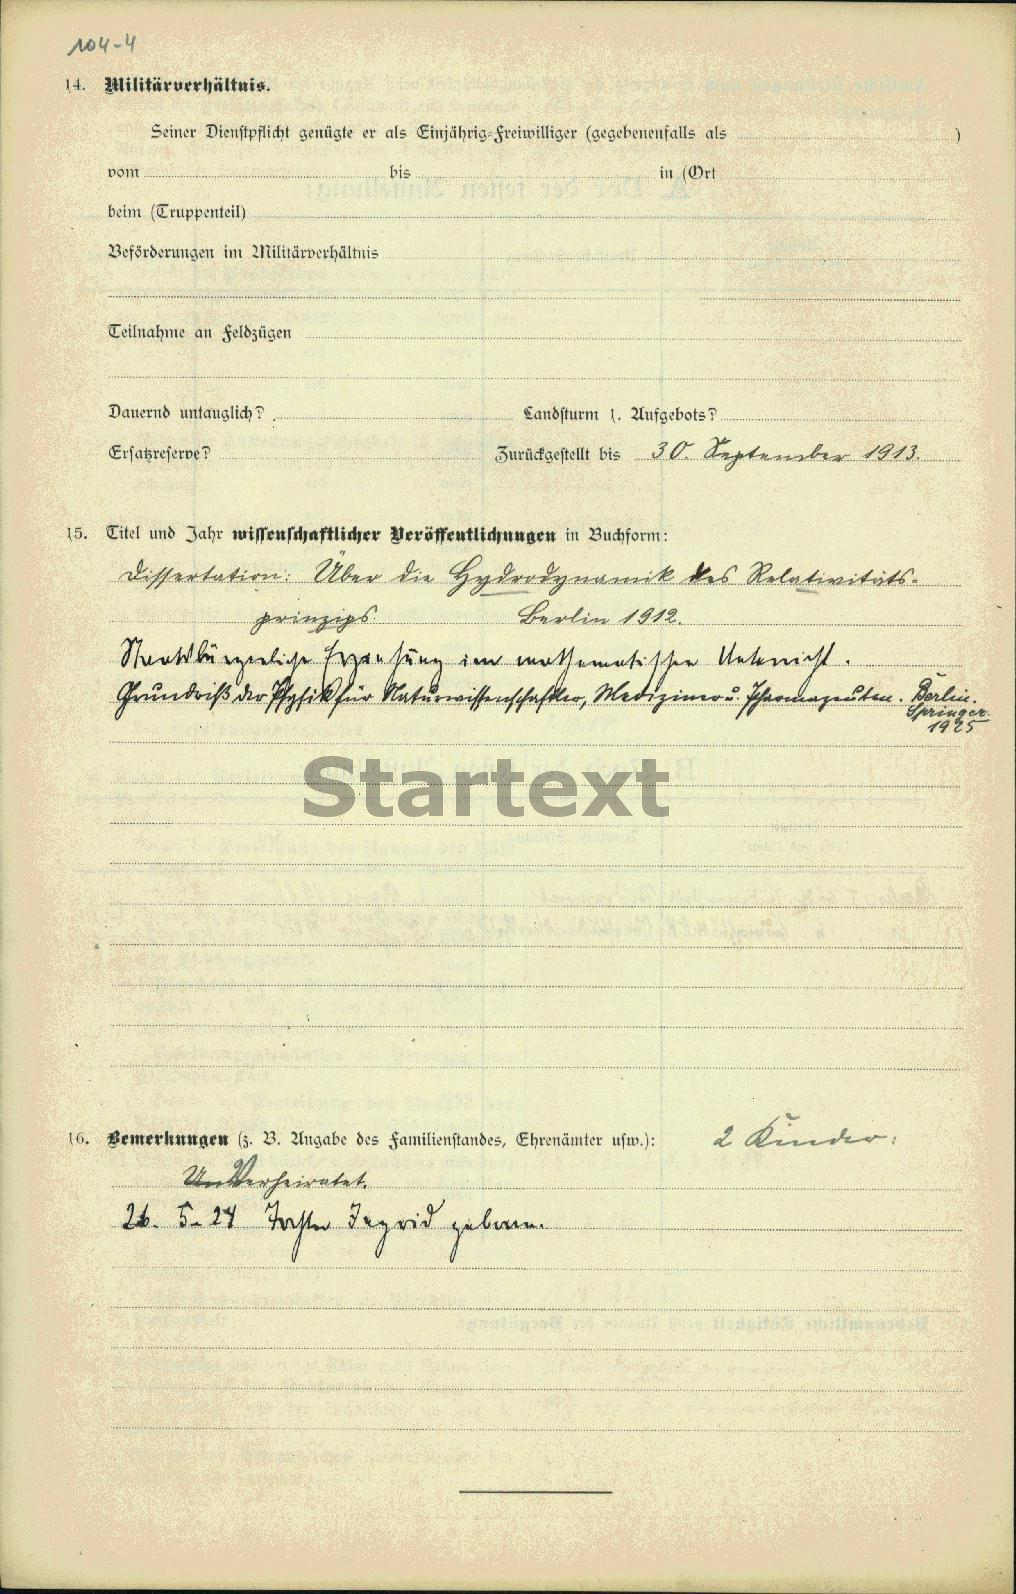 104-4
14. Militärverhältnis.
Seiner Dienstpflicht genügte er als Einjährig-Freiwilliger (gegebenenfalls als )
vom bis in (Ort
beim (Truppenteil)
Beförderungen im Militärverhältnis
Teilnahme an Feldzügen
Dauernd untauglich? Landsturm 1. Aufgebots?
Ersatzreserve? Zurückgestellt bis 30. September 1913.
15. Titel und Jahr wissenschaftlicher Veröffentlichungen in Buchform:
Dissertation: Über die Hydrodynamik des Relativitäts-
prinzips. Berlin 1912.
Staatsbürgerliche Erziehung im mathematischen Unterricht.
Grundriß der Physik für Naturwissenschaftler, Mediziner u. Pharmazeuten. Berlin.
Springer.
1925
Startext
16. Bemerkungen (z. B. Angabe des Familienstandes, Ehrenämter usw.): 2 Kinder:
Un Verheiratet.
26. 5. 24 Tochter Ingrid geboren.